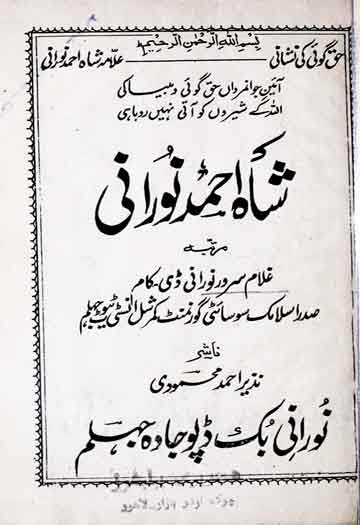 بسم اللہ الرحمن الرحیم
حق گوئی کی نشانی علامہ شاہ احمد نورانی
آئینِ جوانمرداں حق گوئی و بیباکی
اللہ کے شیروں کو آتی نہیں روباہی
شاہ احمد نورانی
مرتبہ
غلام سرور نورانی ڈی۔کام
صدر اسلامک سوسائٹی گورنمنٹ کمرشل انسٹی ٹیوٹ جہلم
ناشر
نذیر احمد محمودی
نورانی بک ڈپو جادہ جہلم